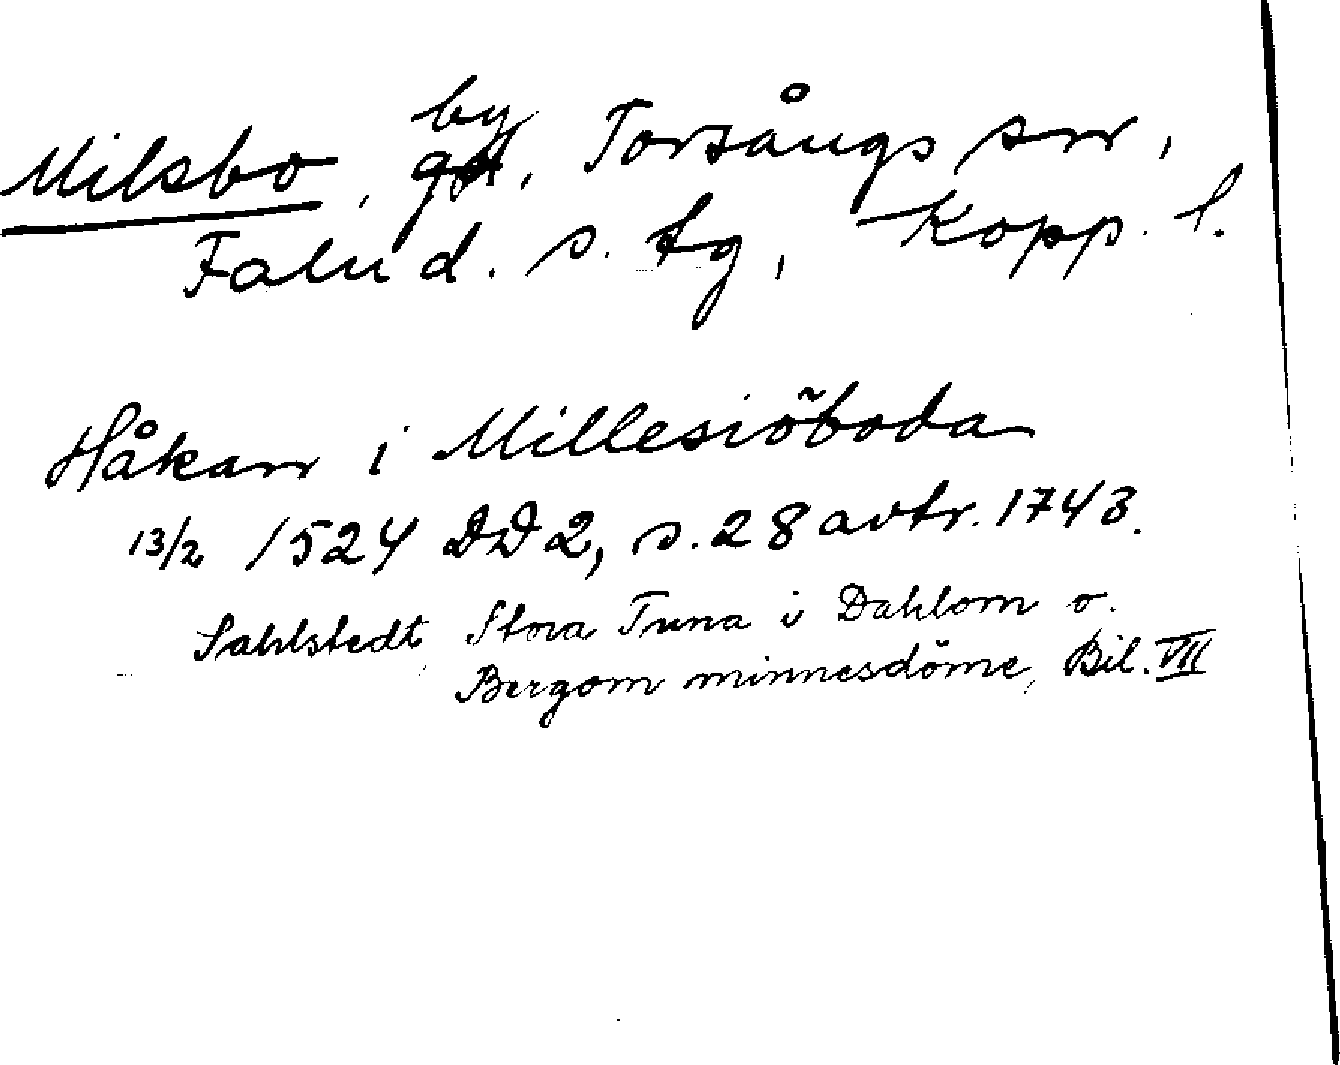 Milsbo, by, Torsångs sn,
Falu d. s. tg, Kopp. l.
Håkan i Millesiöboda
13/2 1524 DD2, s. 28 avtr. 1743.
Sahlstedt Stora Tuna i Dahlom o.
Bergom minnesdöme, Bil. VII